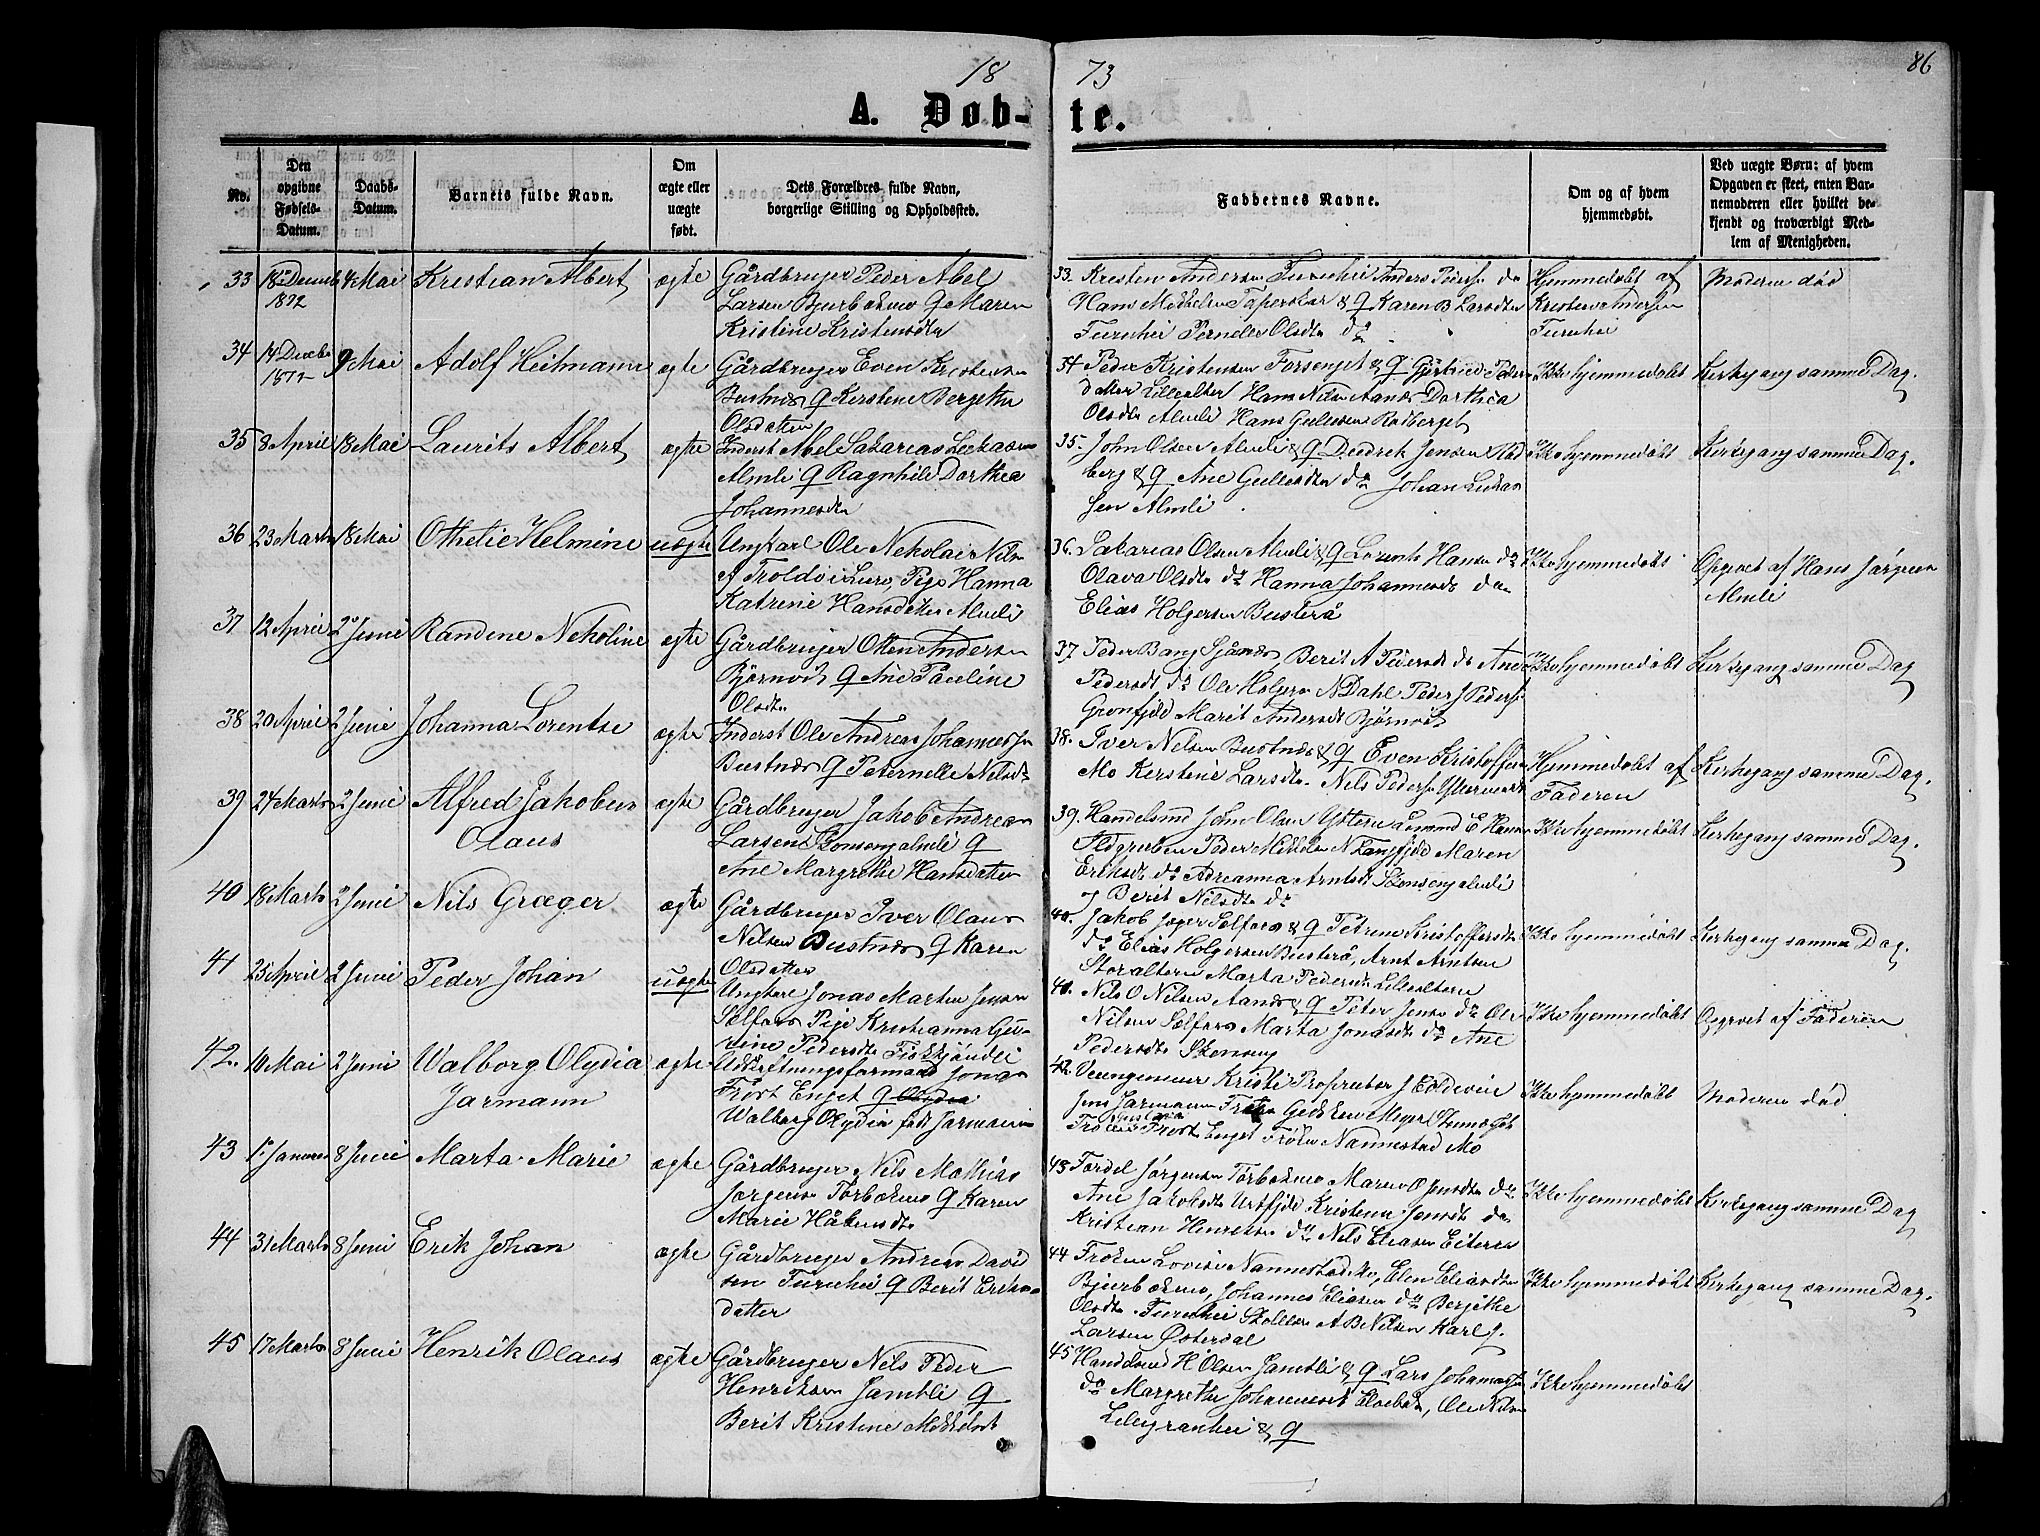 18 73
86
A. Døb- te.
No.
Den opgivne Fødsels-Datum.
Daabs-Datum.
Barnets fulde Navn.
Om ægte eller uægte født.
Dets Forældres fulde Navn, borgerlige Stilling og Opholdssted.
Faddernes Navne.
Om og af hvem hjemmedøbt.
Ved uægte Børn: af hvem Opgaven er skeet, enten Barnemoderen eller hvilket bekjendt og troværdigt Medlem af Menigheden.
33 18 Decemb 1872 4 Mai Kristian Albert ægte Gårdbruger Peder Abel
Larsen Bjerbækmo & Maren
Kristine Kristensdtr
33. Kristen Andersen Furuhei Anders Peders do
Hans Mikkelsen Taperskar & & Karen B Larsdtr
Furuhei Pernelle Olsdtr do
Hjemmedøbt af
Kristen Andersen
Furuhei
Moderen død
34 14 Decbr 1872 4 Mai Adolf Heitmann ægte Gårdbruger Even Kristensen
Bustnes & Kerstine Bergette
Olsdatter
34 Peder Kristensen Forsenget & & Gjertrud Peders
datter Lillealter Hans Nilsen Aanes Dorthea
Olsdtr Almli Hans Gullesen Rødberget
Ikke hjemmedøbt Kirkegang samme Dag.
35 8 April 18 Mai Laurits Albert ægte Inderst Abel Sakarias Lukasen
Almli & Ragnhild Dorthea
Johannesdtr
35. John Olsen Almli & & Deidrek Jensen Rød
berg & & Ane Gullesdtr do Johan Lukas
sen Almli
Ikke hjemmedøbt Kirkegang samme Dag.
36 23 Marts 18 Mai Othetie Helmine uægte Ungkarl Ole Nekolai Nils
af Troldøi Lurø, Pige Hanna
Katrine Hansdatter Almli
36. Sakarias Olsen Almli & & Lorents Hansen do
Olava Olsdtr do Hanna Johannesdtr do
Elias Holgersen Busterå
Ikke hjemmedøbt Opgivet af Hans Jørgen
Almli
37 12 April 2 Juni Randine Nekoline ægte Gårdbruger Otten Andersen
Bjørnadt & Ane Pauline
Olsdtr
37 Peder Bang Sjånes, Berit A Pedersdt do Ane
Pedersdt do Ole Holgers N Dahl Peder J Peders
Grønfjeld Marit Andersdt Bjørnadt
Ikke hjemmedøbt Kirkegang samme Dag
38 20 April 2 Juni Johanna Lorentse ægte Inderst Ole Andreas Johannessen
Bustnes & Peternelle Nilsdt
38. Iver Nilsen Bustnes & & Even Kristoffersen
Mo Kerstine Larsdtr Nils Peders Ytterværdt
Hjemmedøbt af
Faderen
Kirkegang samme Dag.
39 24 Marts 2 Juni Alfred Jakobus
Olaus
ægte Gårdbruger Jakob Andreas
Larsen Skonsengalmli &
Ane Margrethe Hansdatter
39. Handelsmd John Olsen Yttern Amund E Hans
Ildgruben Peder Mikkelsen N Langfjeld Maren
Eriksdt do Adreanna Arntsdt Skonsengalmli
og Berit Nilsdt do
Ikke hjemmedøbt Kirkegang samme Dag.
40 18 Marts 2 Juni Nils Græger ægte Gårdbruger Iver Olaus
Nilsen Bustnes & Karen
Olsdatter
40. Jakob Jæger Selfors & & Petrine Kristoffersdt
do Elias Holgersen Busterå, Arnt Arntsen
Storalteren Marta Pedersdt Lillealteren
Ikke hjemmedøbt Kirkegang samme Dag.
41 25 April 2 Juni Peder Johan uægte Ungkarl Jonas Martin Jensen
Selfors Pige Kristianna Gu-
rine Pedersdtr Fiskkjønli
41. Nils O Nilsen Aanes & & Peter Jensen do Ole
Nilsen Selfors Marta Jonasdt do Ane
Pedersdtr Skonseng
Ikke hjemmedøbt Opgivet af Faderen
42. 10 Mai 2 Juni Walborg Olydia
Jarmann
ægte Udskiftningsformand Jonas
Frost Enget & Olydia
Walborg Olydia født Jarmann
42. Veiingeniør Kristie
Jens Jarmann
Enget Frøken Nannestad Mo
Ikke hjemmedøbt Moderen død
43 1 Januar 8 Juni Marta Marie ægte Gårdbruger Nils Mathias
Jørgens Tørbækmo & Karen
Marie Håkensdtr
43 Fordel Jørgensen Tørbækmo Maren O Jensdtr do
Ane Jakobsdtr Urtfjeld Kristine Jensdt do
Kristian Henriksen do Nils Eliasen Eiteren
Ikke hjemmedøbt Kirkegang samme Dag
44 31 Marts 8 Juni Erik Johan ægte Gårdbruger Andreas David
sen Furuhei & Berit Eriks
datter
44 Frøken Lovise Nannestad Mo, Elen Eliasdtr
Bjerbækmo, Johannes Eliasen do Bergithe
Olsdtr Furuhei Skoleh A B Nilsen Karl J.
Larsen Østerdal
Ikke hjemmedøbt Kirkegang samme Dag.
45 17 Marts 8 Juni Henrik Olaus ægte Gårdbruger Nils Peder
Henriksen Jamtli &
Berit Kristine Mikkelsdt
45 Handelsmd H Olsen Jamtli & & Lars Johannes
do Margrethe Johannesdt, Ole Nilsen
Lillegranhei & &
Ikke hjemmedøbt